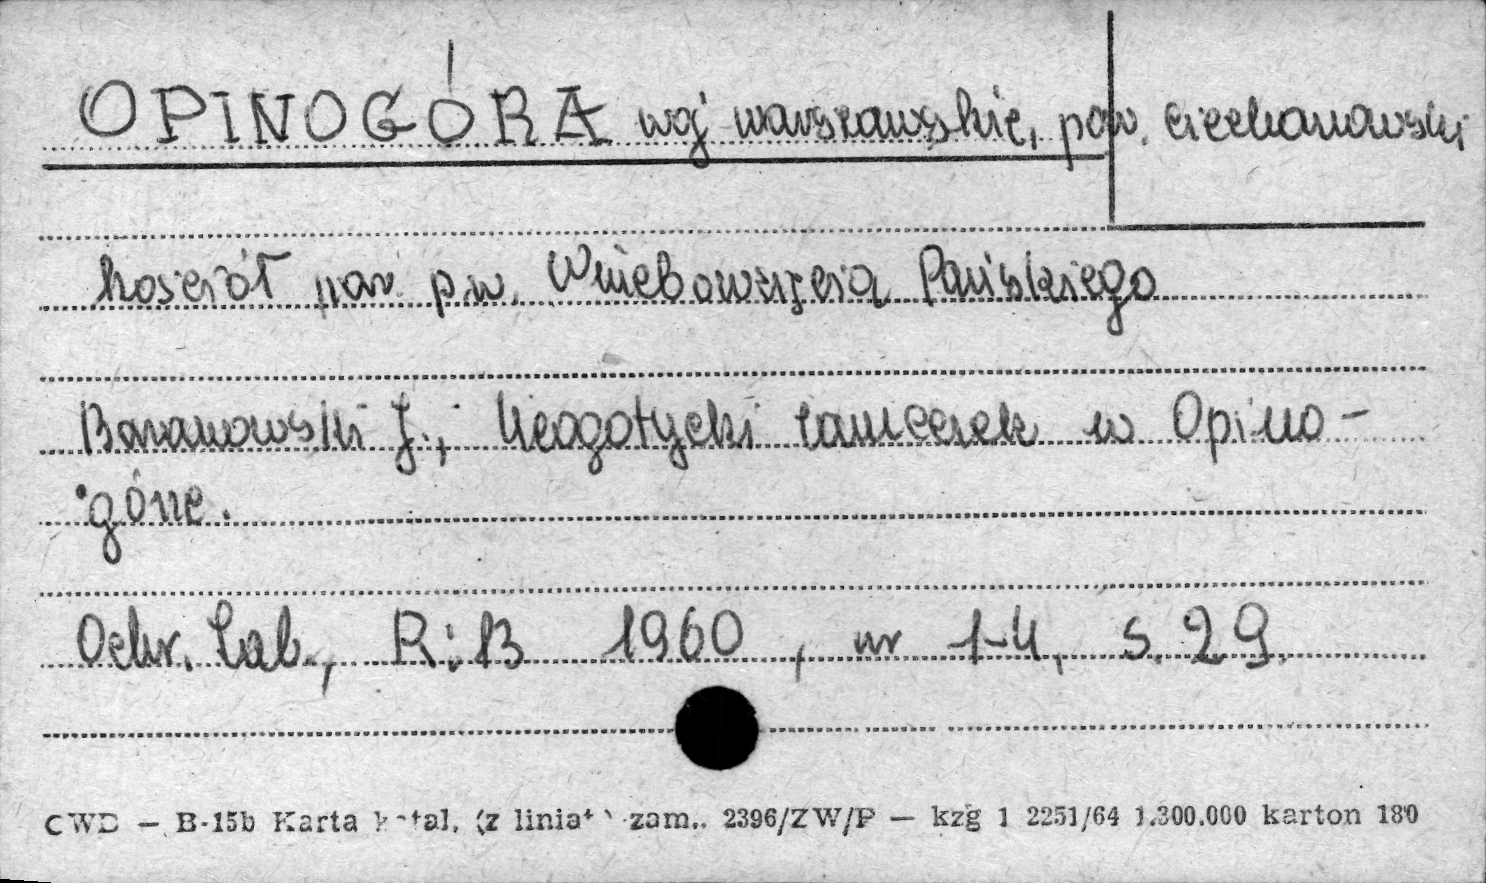 OPINOGÓRA woj warszawskie, pow. ciechanowski
Kościół par. p.w. Wniebowzięcia Pańskiego
Baranowski J., Neogotycki zameczek w Opino-
górze.
Ochr. Zab., R: 13 1960, nr 1-4, s. 29.
CWD — B-15b Karta katal. (z liniat) zam.. 2396/ZW/P — kzg 1 2251/64 1.300.000 karton 180